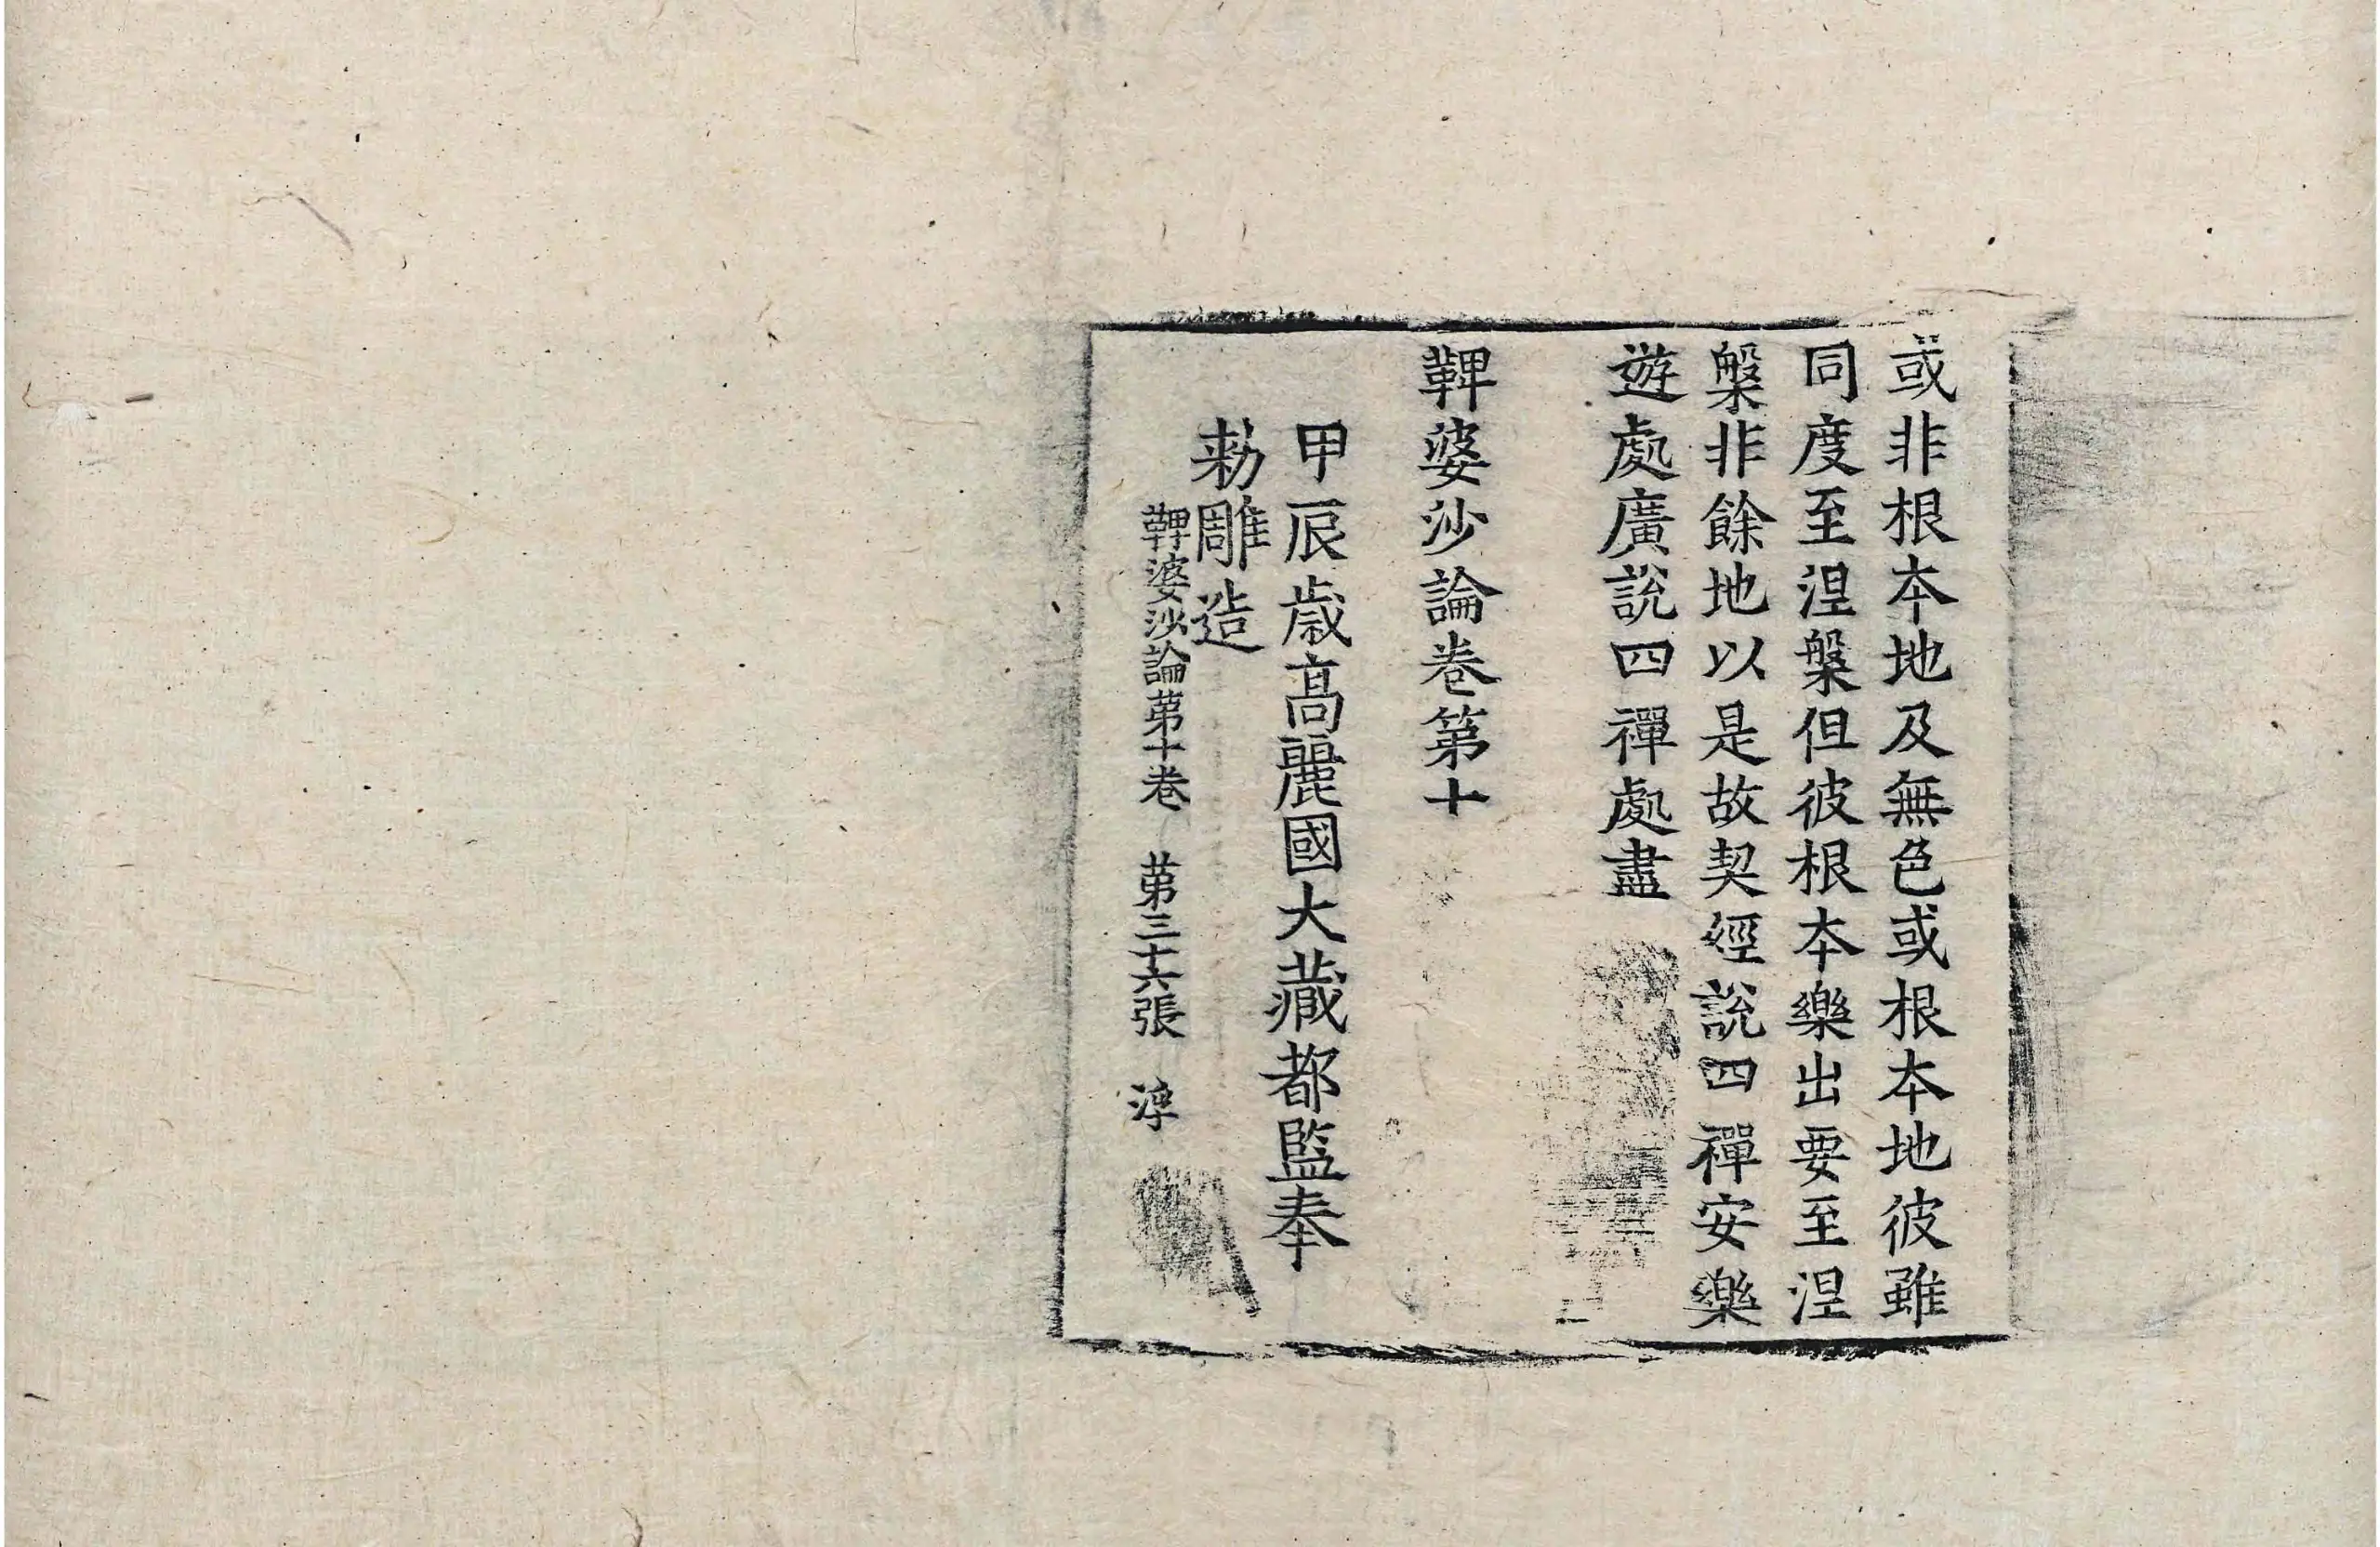 或非根本地及無色或根本地彼雖
同度至涅槃但彼根本樂出要至涅
槃非餘地以是故契經說四禪安樂
遊處廣說四禪處盡
鞞婆沙論卷第十
甲辰歲高麗國大藏都監奉
勅雕造
鞞婆沙論第十卷 第三十六張